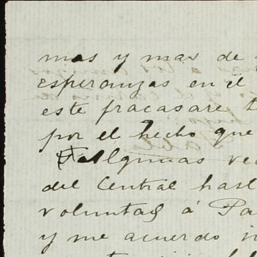 mas y mas de
esperanzas en el
este fracasare t
por el hecho que
algunas vec
del Central hasl
voluntag á Pa
y me acuerdo vi